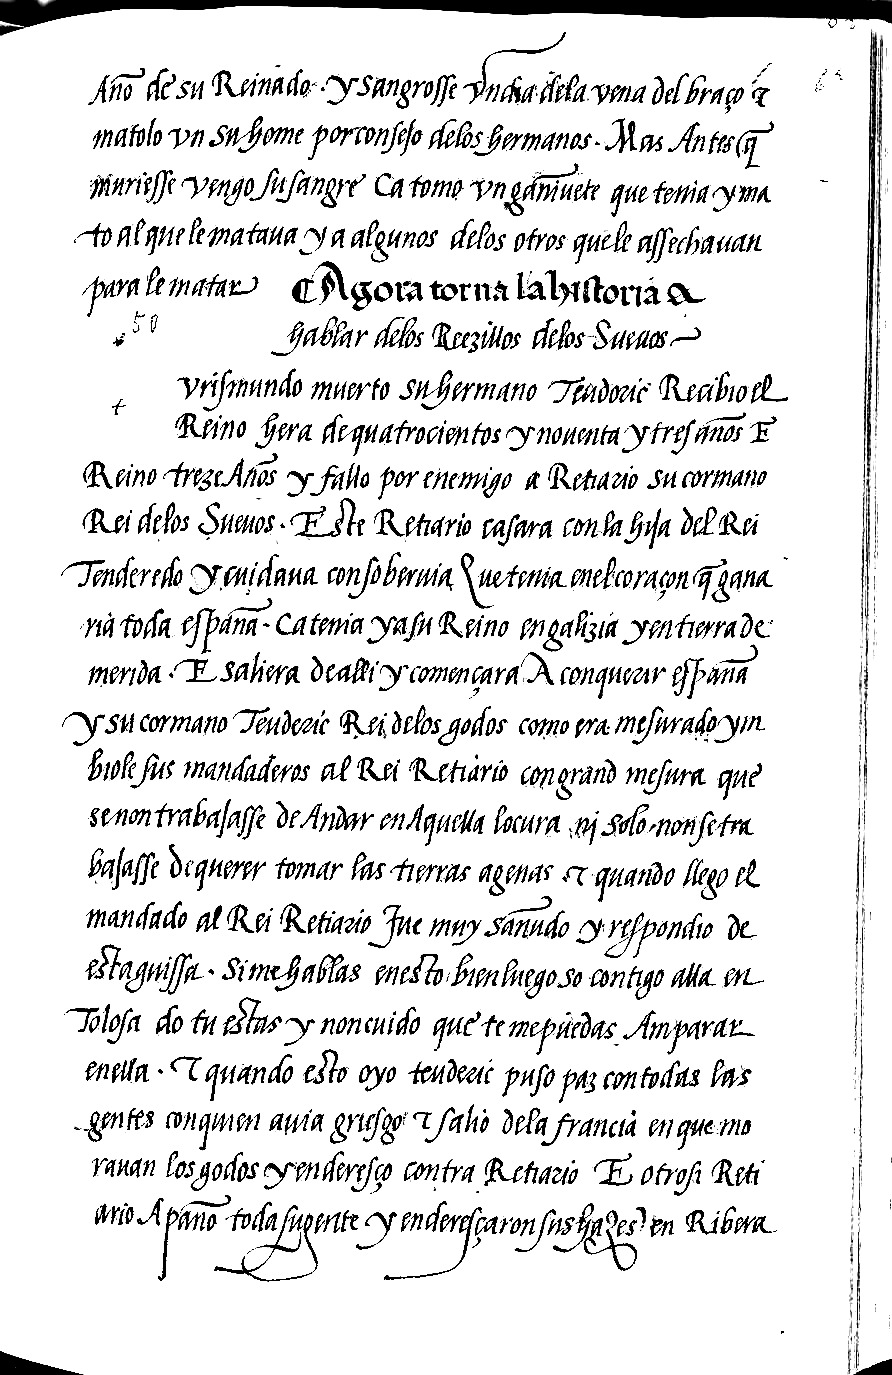 Año de su Reinado · y sangrosse vn dia dela vena del braço τ
matolo vn su home por consejo delos hermanos · Mas Antes q̃
muriesse vengo su sangre Ca tomo vn gañiuete que tenia y ma
to al que le mataua y a algunos delos otros que le assechauan
para le matar ¶ Agora torna la historia a
hablar delos Reezillos delos Sueuos
50
+ vrismundo muerto su hermano Teudoric Recibio el
Reino hera de quatrocientos y nouenta y tres años E
Reino treze Años y fallo por enemigo a Retiario su cormano
Rei delos Sueuos · Este Retiario casara con la hija del Rei
Tenderedo y cuidaua con soberuia Que tenia en el coraçon q̃ gana
ria toda españa · Ca tenia ya su Reino en galizia y en tierra de
merida · E saliera de alli y començara A conquerir españa
y su cormano Teuderic Rei delos godos como era mesurado y in
biole sus mandaderos al Rei Retiario con grand mesura que
se non trabajasse de Andar en Aquella locura nj solo non se tra
bajasse de querer tomar las tierras agenas τ quando llego el
mandado al Rei Retiario Fue muy sañudo y respondio de
esta guissa · Si me hablas en esto bien luego so contigo alla en
Tolosa do tu estas y non cuido que te me puedas Amparar
en ella · τ quando esto oyo teuderic puso paz con todas las
gentes con quien auia griesgo τ salio dela francia en que mo
rauan los godos y enderesço contra Retiario E otrosi Reti
ario Apaño toda su gente y enderesçaron sus hazes en Ribera